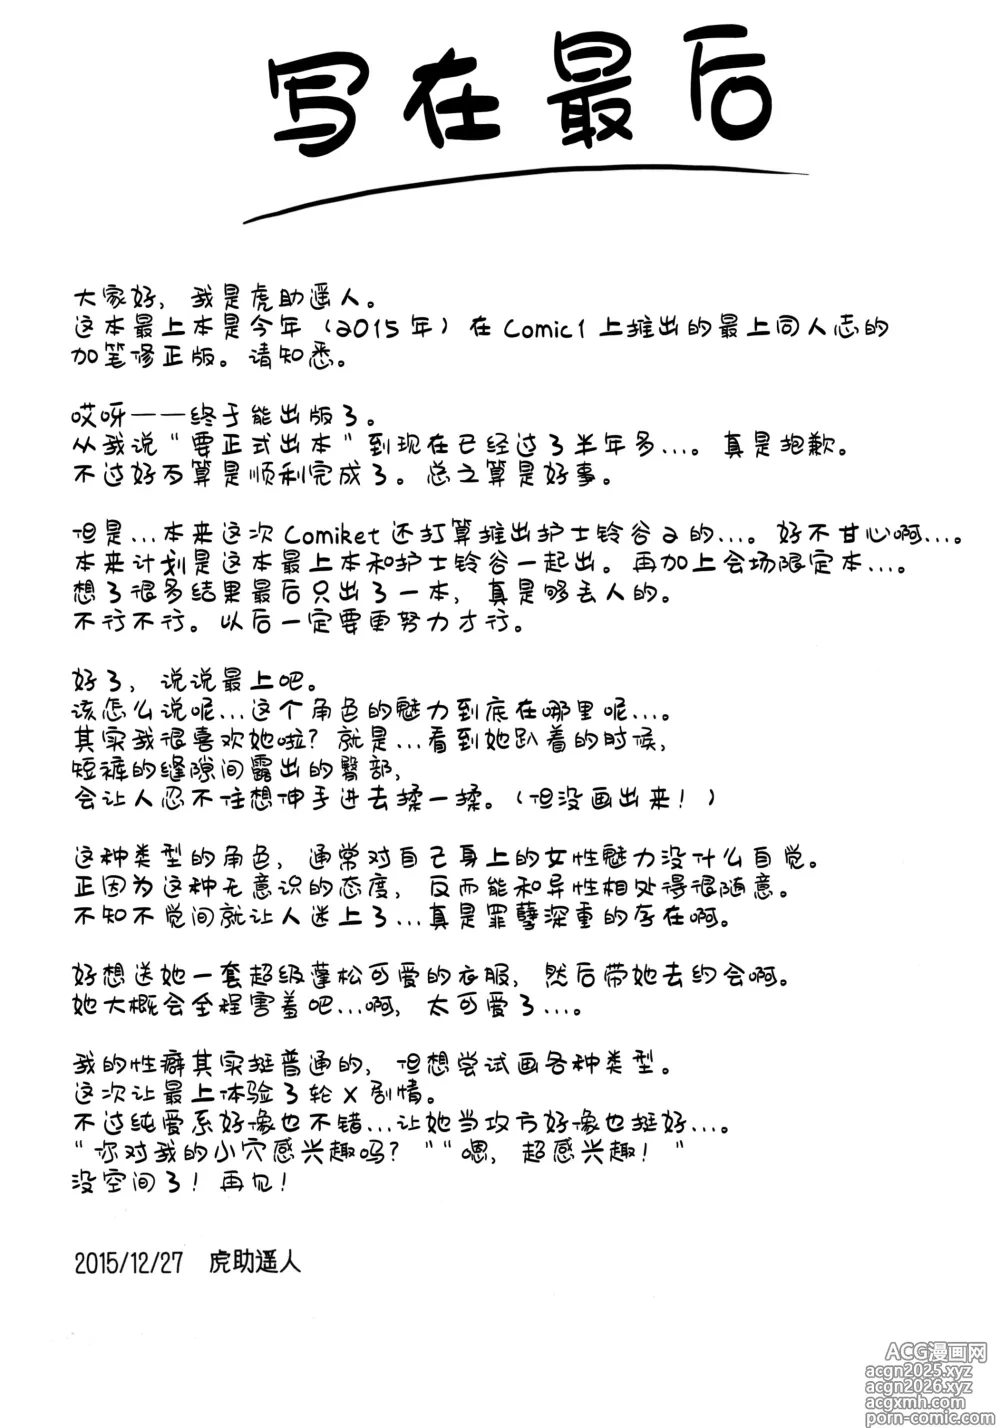 写在最后
大家好，我是虎助遥人。
这本最上本是今年（2015年）在Comic1上推出的最上同人志的
加笔修正版。请知悉。
哎呀——终于能出版了。
从我说“要正式出本”到现在已经过了半年多...。真是抱歉。
不过好歹算是顺利完成了。总之算是好事。
但是...本来这次Comiket还打算推出护士铃谷2的...。好不甘心啊...。
本来计划是这本最上本和护士铃谷一起出。再加上会场限定本...。
想了很多结果最后只出了一本，真是够丢人的。
不行不行。以后一定要更努力才行。
好了，说说最上吧。
该怎么说呢...这个角色的魅力到底在哪里呢...。
其实我很喜欢她啦？就是...看到她趴着的时候，
短裤的缝隙间露出的臀部，
会让人忍不住想伸手进去揉一揉。（但没画出来！）
这种类型的角色，通常对自己身上的女性魅力没什么自觉。
正因为这种无意识的态度，反而能和异性相处得很随意。
不知不觉间就让人迷上了...真是罪孽深重的存在啊。
好想送她一套超级蓬松可爱的衣服，然后带她去约会啊。
她大概会全程害羞吧...啊，太可爱了...。
我的性癖其实挺普通的，但想尝试画各种类型。
这次让最上体验了轮X剧情。
不过纯爱系好像也不错...让她当攻方好像也挺好...。
“你对我的小穴感兴趣吗？”“嗯，超感兴趣！”
没空间了！再见！
2015/12/27 虎助遥人
ACG漫画网
acgn2025.xyz
acgn2026.xyz
acgxmh.com
porn-comic.com